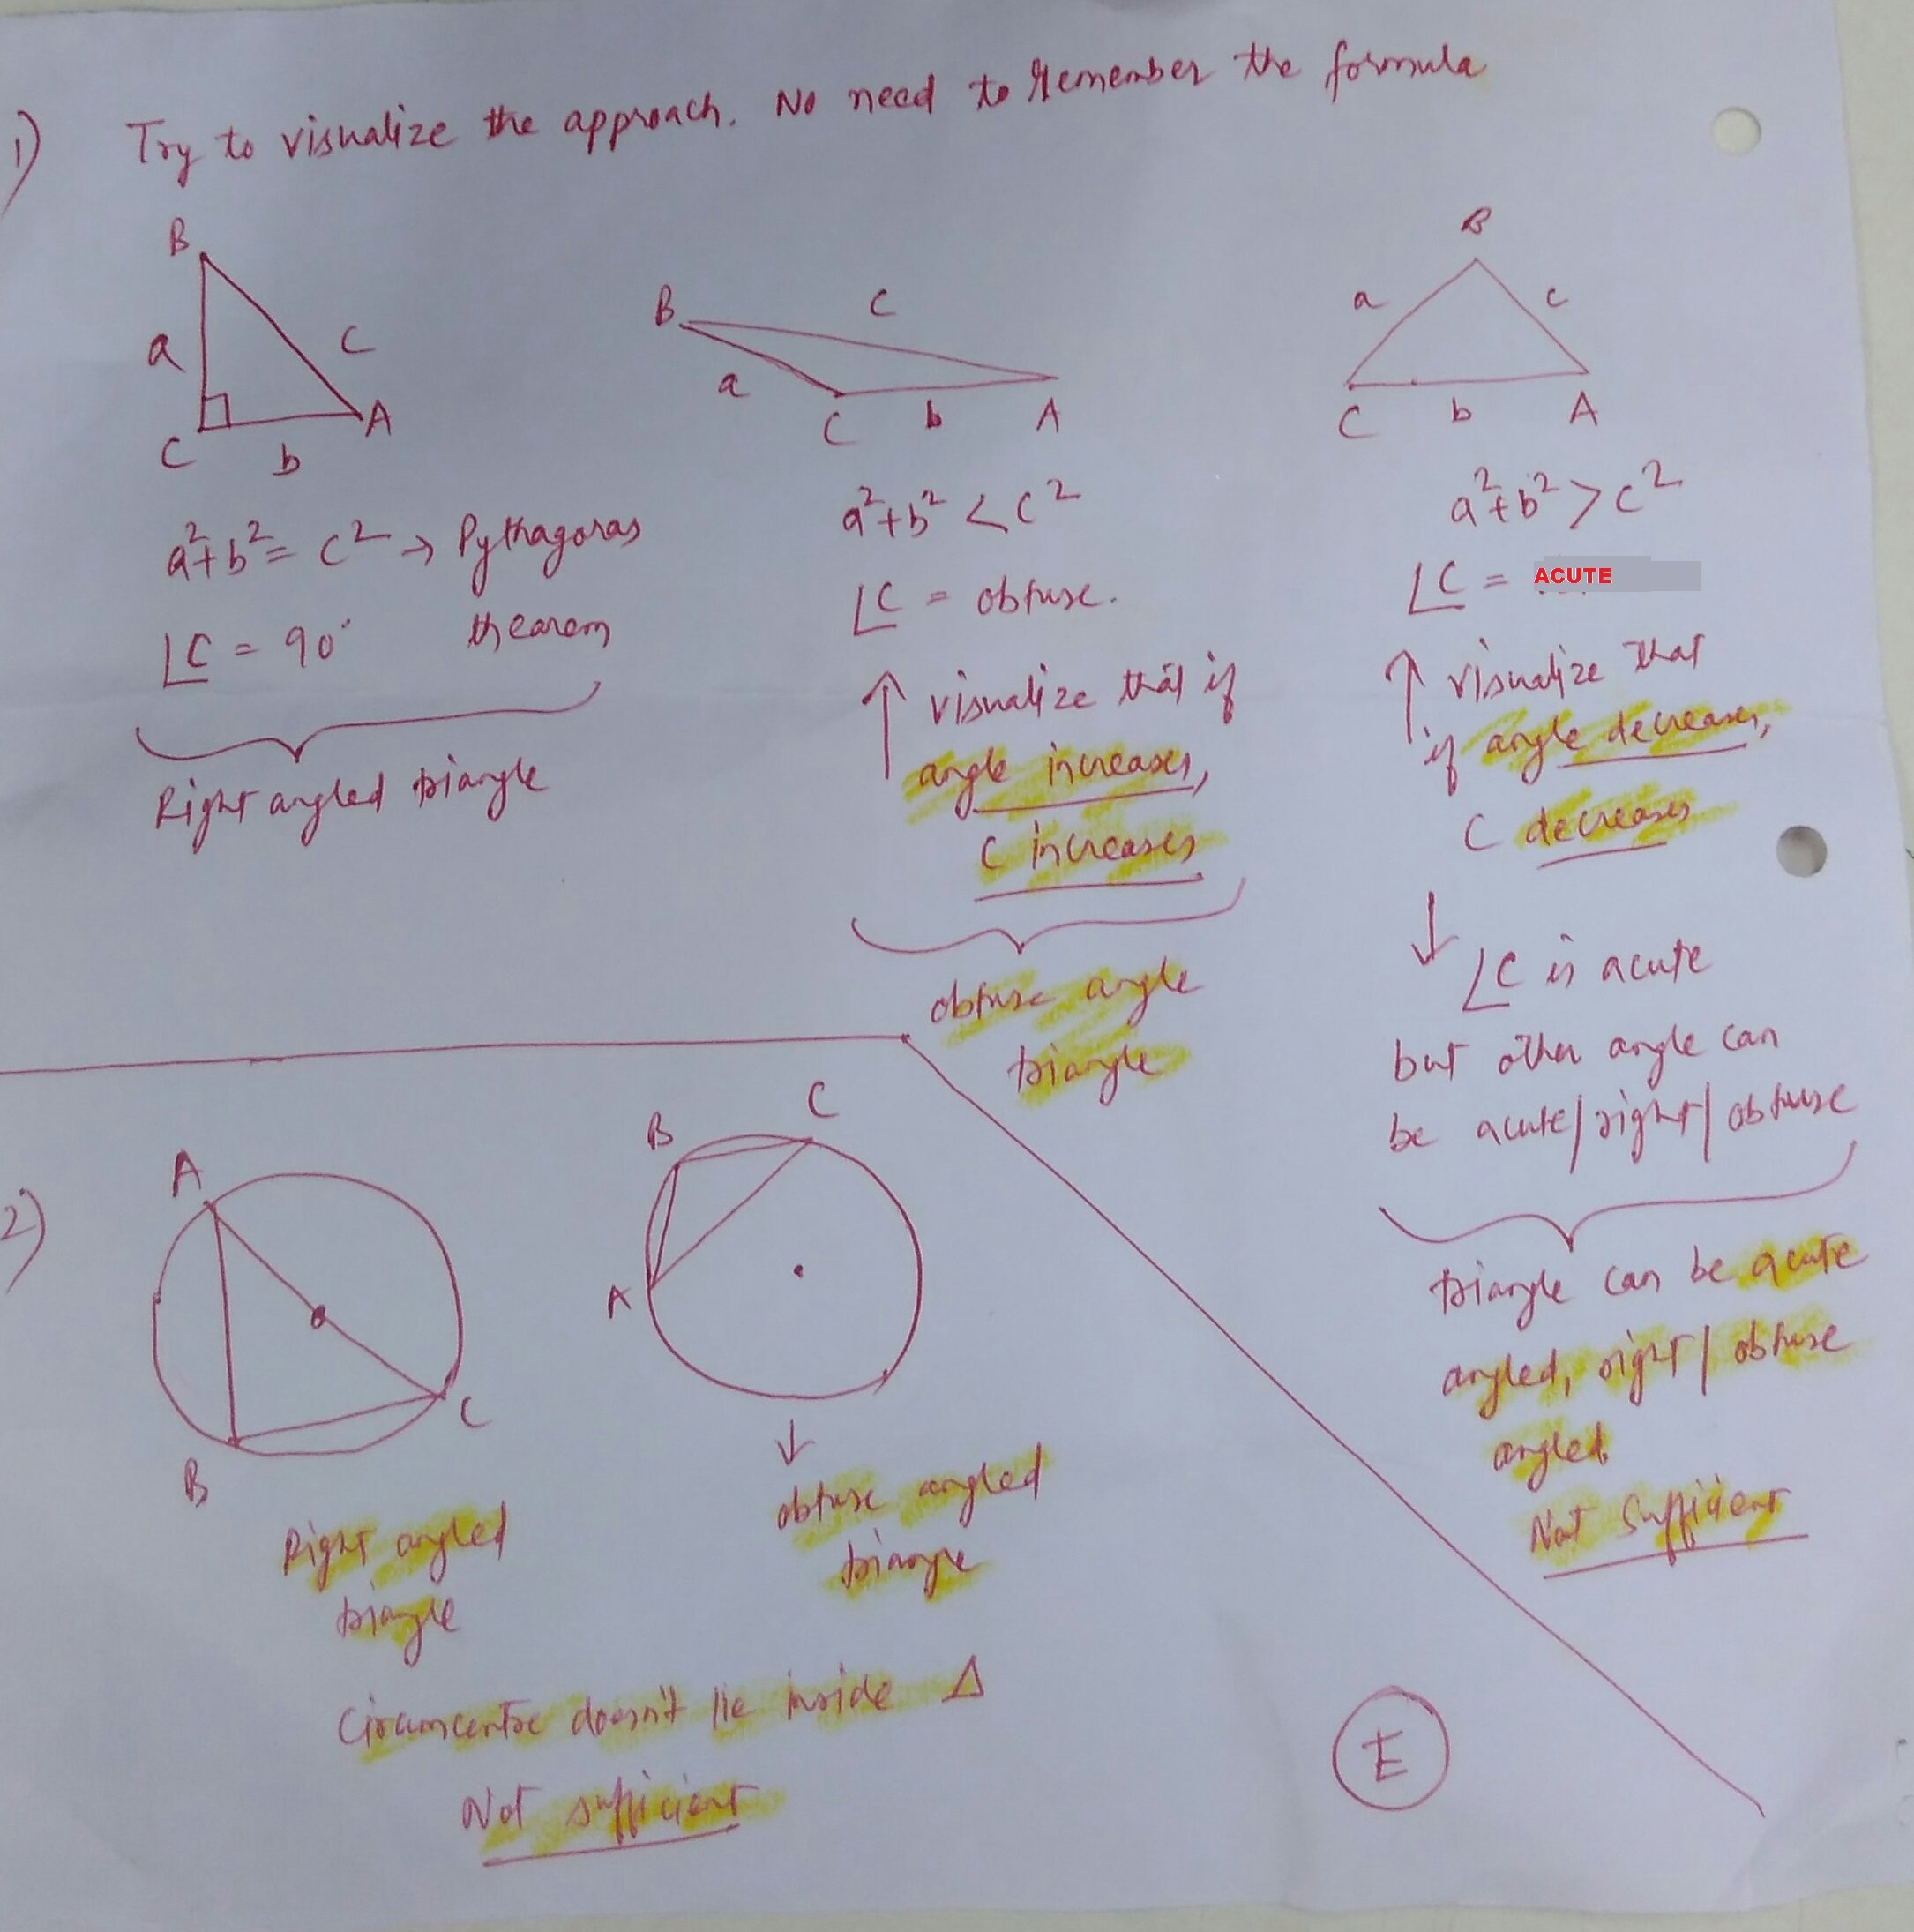 1) Try to visualize the approach. No need to remember the formula
B
a
c
C
b
A
a²+b² = c² → Pythagoras
∠C = 90° thearem
Right angled triangle
B
c
a
C
b
A
a²+b² < c²
∠C = obtuse.
↑ visualize that if
angle increases,
C increases
obtuse angle
triangle
B
a
c
C
b
A
a²+b² > c²
∠C = ACUTE
↑ visualize that
if angle decreases,
C decreases
↓
∠C is acute
but other angle can
be acute/right/obtuse
triangle can be acute
angled, right/obtuse
angled.
Not Sufficient
2)
A
B
C
Right angled
triangle
B
C
A
↓
obtuse angled
triangle
Circumcentre doesn't lie inside Δ
Not sufficient
E